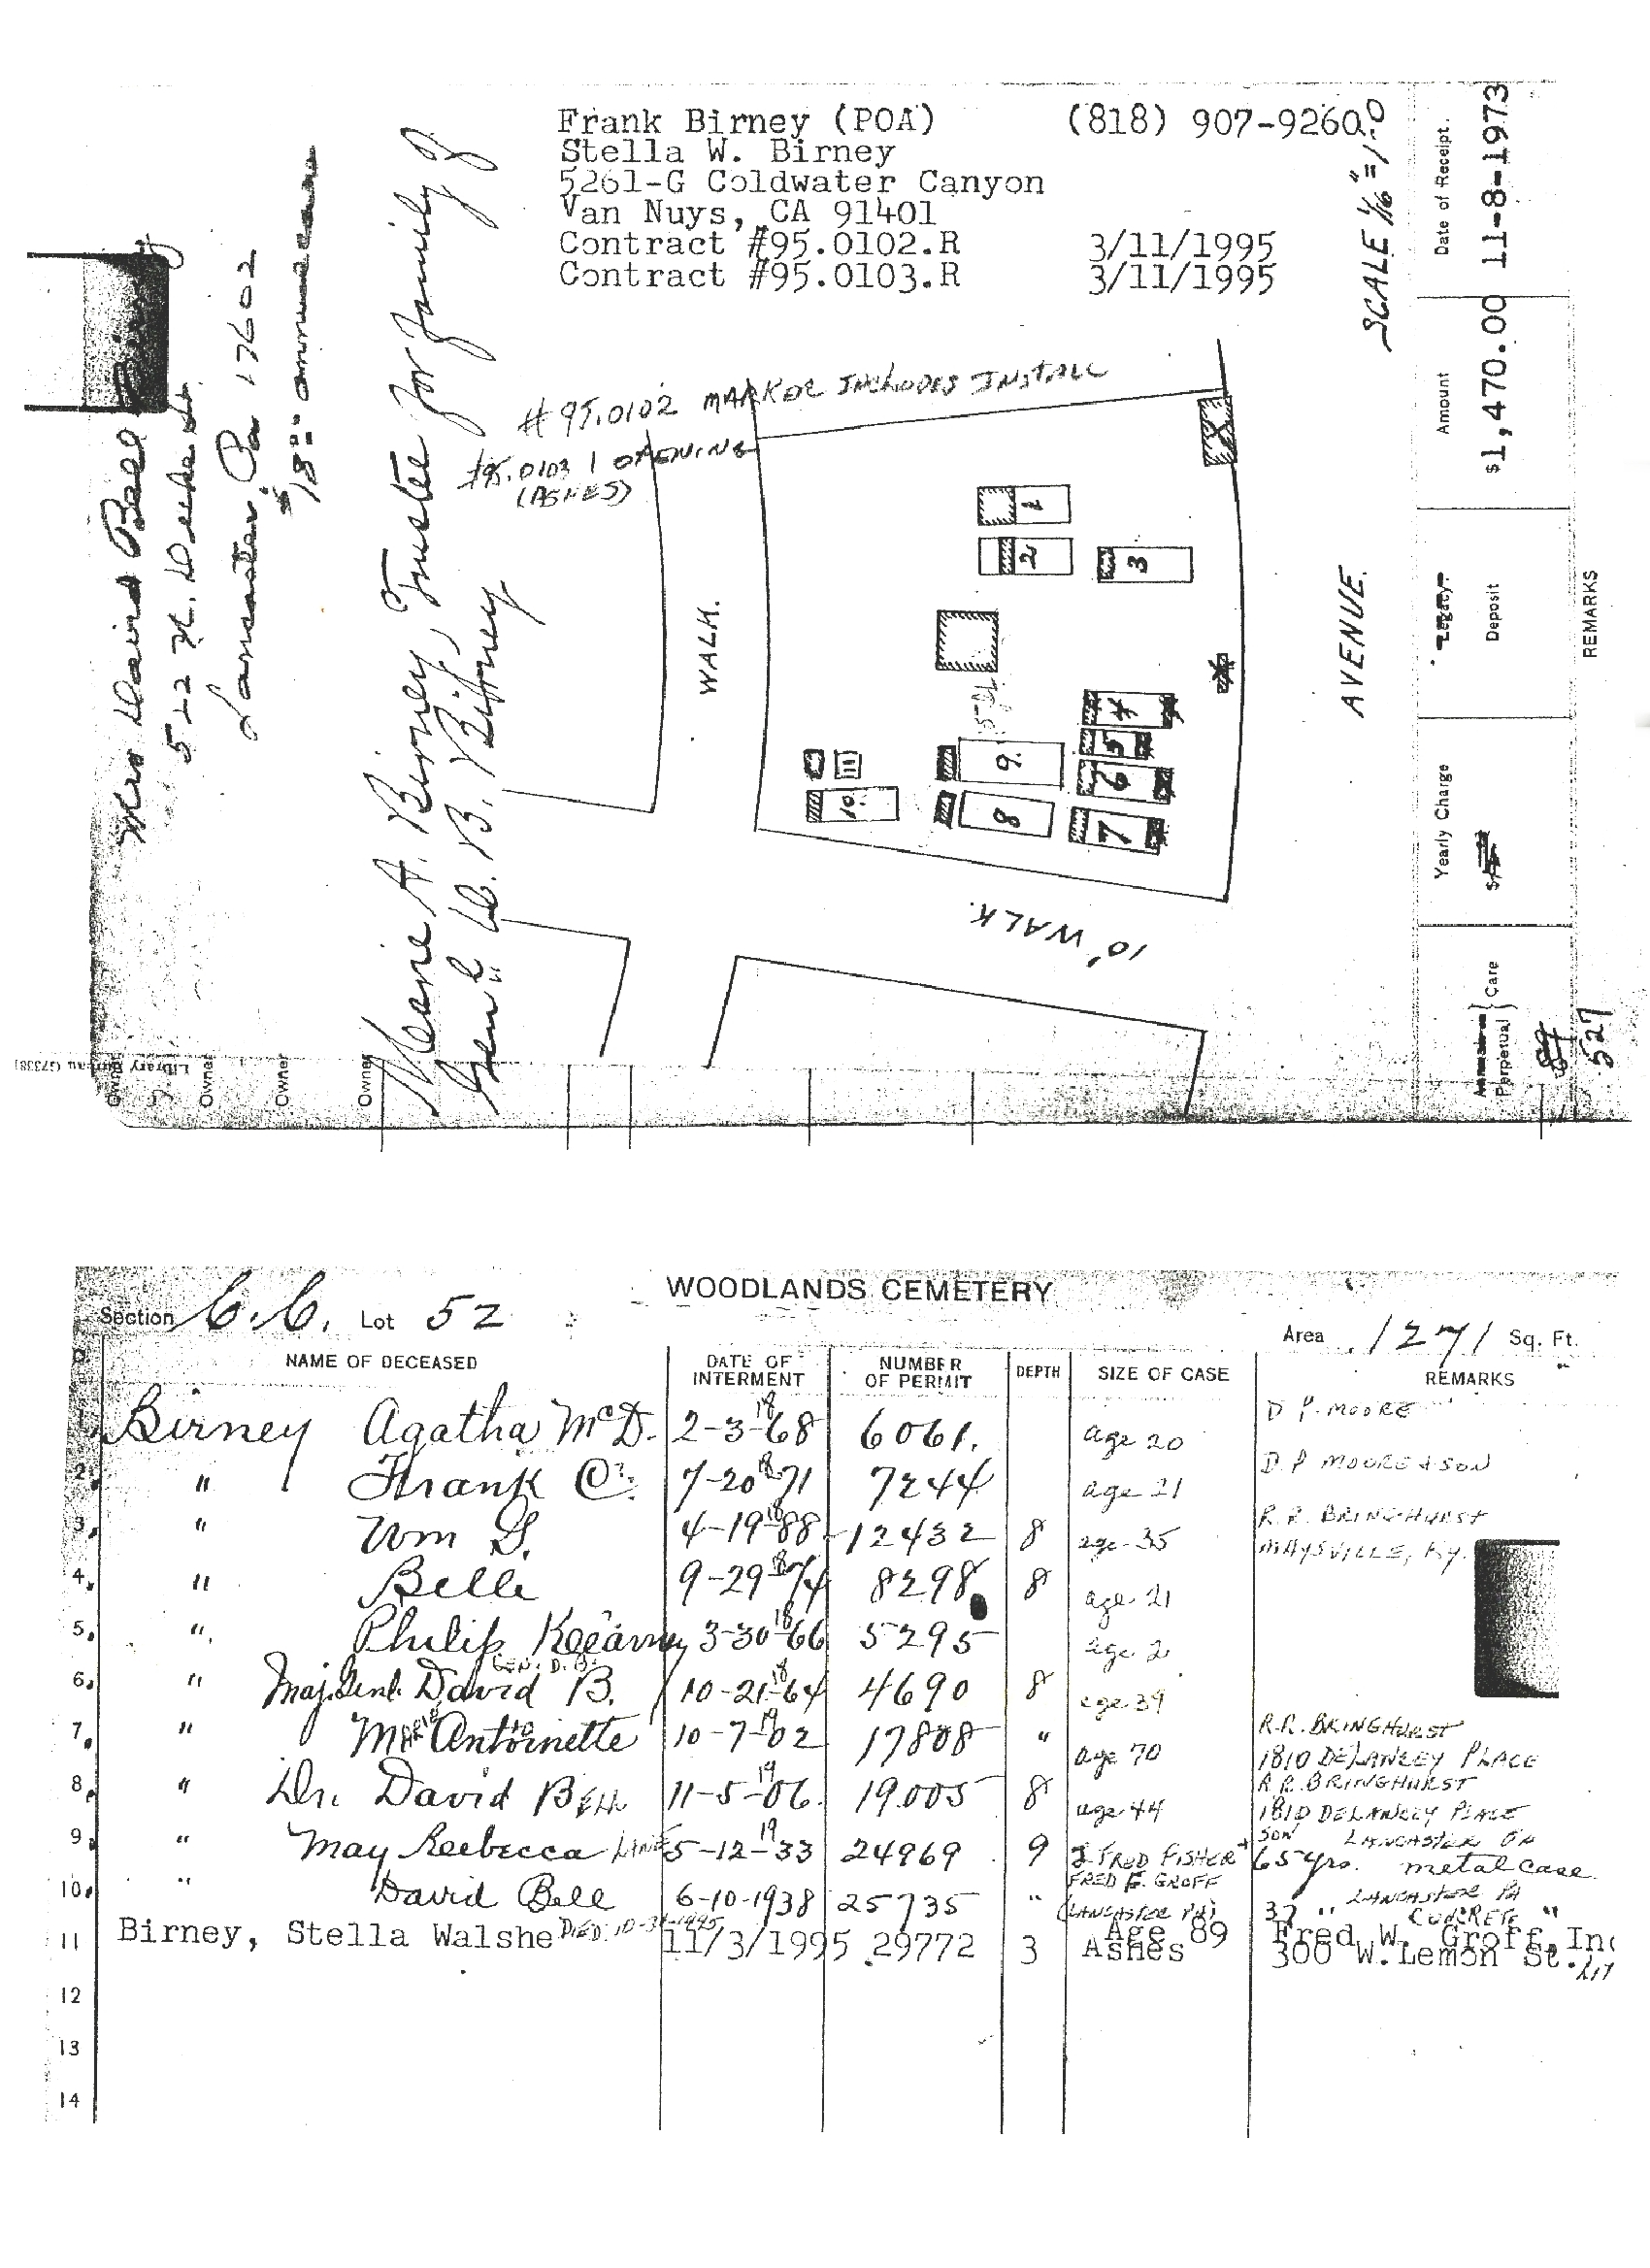 Frank Birney (POA) (818) 907-9260
Stella W. Birney
5261-G Coldwater Canyon
Van Nuys, CA 91401
Contract #95.0102.R 3/11/1995
Contract #95.0103.R 3/11/1995
SCALE 1/16" = 1'-0
# 95.0102 MARKER INCLUDES INSTALL
#95.0103 1 OPENING
(ASHES)
Mrs David Bell Birney
522 N.
Lancaster, Pa 17602
$18.00 annual care
A. Birney, Trustee for family of
Genl D. B. Birney
Owner
Owner
Owner
Owner
Library Bureau G7338
WALK.
10' WALK.
AVENUE.
1
2
3
4
5
6
7
8
9.
10.
11
Date of Receipt.
11-8-1973
Amount
$1,470.00
Legacy
Deposit
Yearly Charge
Perpetual } Care
REMARKS
527
WOODLANDS CEMETERY
Section C.C. Lot 52
Area 1271 Sq. Ft.
NAME OF DECEASED DATE OF INTERMENT NUMBER OF PERMIT DEPTH SIZE OF CASE REMARKS
1 Birney Agatha McD. 2-3-1868 6061. age 20 D P. MOORE
2. " Frank C. 7-20-1871 7244 age 21 D. P MOORE & SON
3. " Wm G. 4-19-1888 12432 8 age 35 R. R. BRINGHURST
MAYSVILLE, KY.
4. " Belle 9-29-1874 8298 8 age 21
5. " Philip Kearney 3-30-1866 5295 age 2
GEN. D. B.
6. " Maj. Genl. David B. 10-21-1864 4690 8 age 39
7. " Antoinette 10-7-1902 17808 " age 70 R.R. BRINGHURST
1810 DELANCEY PLACE
8. " Dr. David Bell 11-5-1906. 19005 8 age 44 R.R. BRINGHURST
1810 DELANCEY PLACE
9. " May Reebecca LANE 5-12-1933 24969 9 J. FRED FISHER + SON LANCASTER PA
65 yrs. metal case
10. " David Bell 6-10-1938 25735 " FRED F. GROFF
(LANCASTER PA) 37 " LANCASTER PA
CONCRETE "
11 Birney, Stella Walshe DIED 10-31-1995 11/3/1995 29772 3 Age 89
Ashes Fred W. Groff, Inc
300 W.Lemon St.
12
13
14